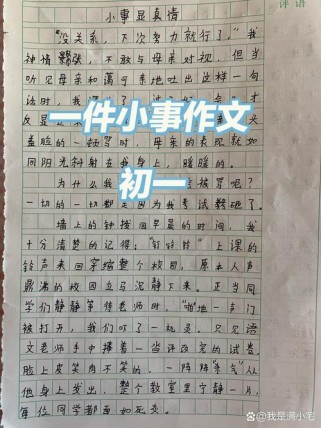 评语
小事显真情
“没关系,下次努力就行了,”我
神情飘张,不敢与母亲对视,但当
听见母亲和蔼可亲地吐出这样一句
话时,我
反
盖脸的一顿骂时,母亲的表现就如
同阳光斜射在我身上,暖暖的。
一件小事作文
初一
为什么我 被骂呢?
一切的一切都是因为我考试考砸了。
墙上的钟拨回早晨的时间,我
十分清楚的记得:“铃铃铃”上课的
铃声来回穿梭整个校园,原本人声
鼎沸的校园立马沉静下来。正当同
学们静静等待老师时,“啪”地一声门
被打开,我们吓了一机灵。只见语
文老师手中捧着一沓评改完的试卷,
脸上皮笑肉不笑的,一阵阵“杀气”从
他身上发出,整个教室里宁静一片,
每位同学都面如死灰。
@我是满小宅